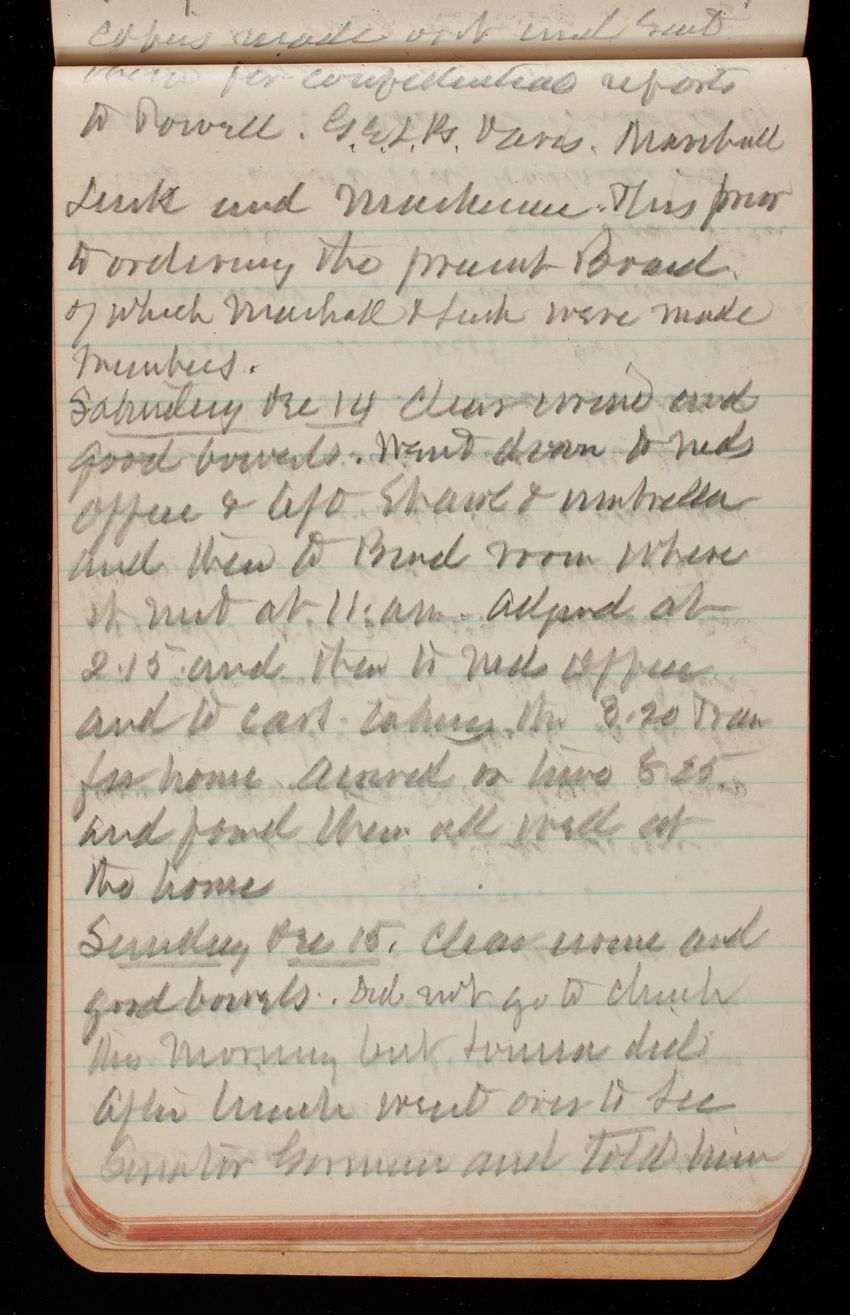 copies made out and sent
them for confidential reports
to Powell. G.E.L.B. Davis. Marshall
Lusk and Mackenzie. This prior
to ordering the present Board
of which Marshall & Lusk were made
members.
Saturday Dec 14 Clear and
good bowels. Went down to Neds
office & left Shawl & umbrella
and then to Board room where
it met at 11. am. Adjnd at
2.15 and then to Neds office
and to cars taking the 3.20 Train
for home Arrived on time 8 25
and found them all well at
the home
Sunday Dec 15. Clear and
good bowels. Did not go to church
this morning but Louisa did
After lunch went over to see
Senator Gorman and told him